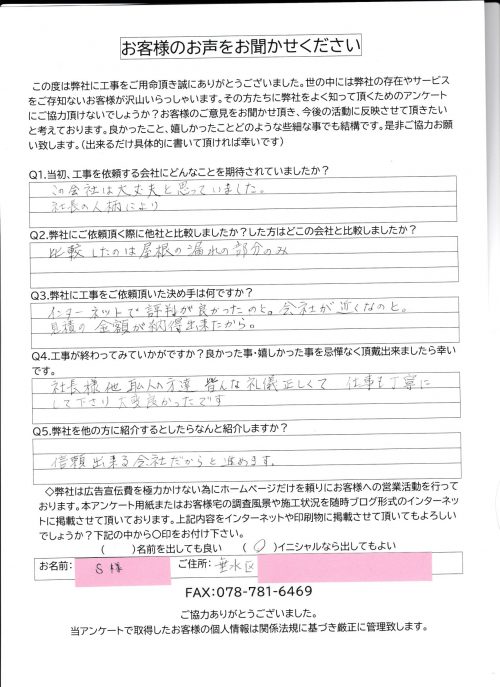 お客様のお声をお聞かせください
この度は弊社に工事をご用命頂き誠にありがとうございました。世の中には弊社の存在やサービス
をご存知ないお客様が沢山いらっしゃいます。その方たちに弊社をよく知って頂くためのアンケート
にご協力頂けないでしょうか？お客様のご意見をお聞かせ頂き、今後の活動に反映させて頂きたい
と考えております。良かったこと、嬉しかったことどのような些細な事でも結構です。是非ご協力お願
い致します。（出来るだけ具体的に書いて頂ければ幸いです）
Q1.当初、工事を依頼する会社にどんなことを期待されていましたか？
この会社は大丈夫と思っていました。
社長の人柄により
Q2.弊社にご依頼頂く際に他社と比較しましたか？した方はどこの会社と比較しましたか？
比較したのは屋根の漏れの部分のみ
Q3.弊社に工事をご依頼頂いた決め手は何ですか？
インターネットで評判が良かったのと。会社が近くなのと。
見積の金額が納得出来たから。
Q4.工事が終わってみていかがですか？良かった事・嬉しかった事を忌憚なく頂戴出来ましたら幸い
です。
社長様他職人の方達 皆んな礼儀正しくて 仕事も丁寧に
して下さり大変良かったです
Q5.弊社を他の方に紹介するとしたらなんと紹介しますか？
信頼出来る会社だからと進めます。
◇弊社は広告宣伝費を極力かけない為にホームページだけを頼りにお客様への営業活動を行って
おります。本アンケート用紙またはお客様宅の調査風景や施工状況を随時ブログ形式のインターネッ
トに掲載させて頂いております。上記内容をインターネットや印刷物に掲載させて頂いてもよろしい
でしょうか？下記の中から〇印をお付け下さい。
（　　）名前を出しても良い　（ 〇 ）イニシャルなら出してもよい
お名前： S 様 ご住所： 垂水区
FAX:078-781-6469
ご協力ありがとうございました。
当アンケートで取得したお客様の個人情報は関係法規に基づき厳正に管理致します。